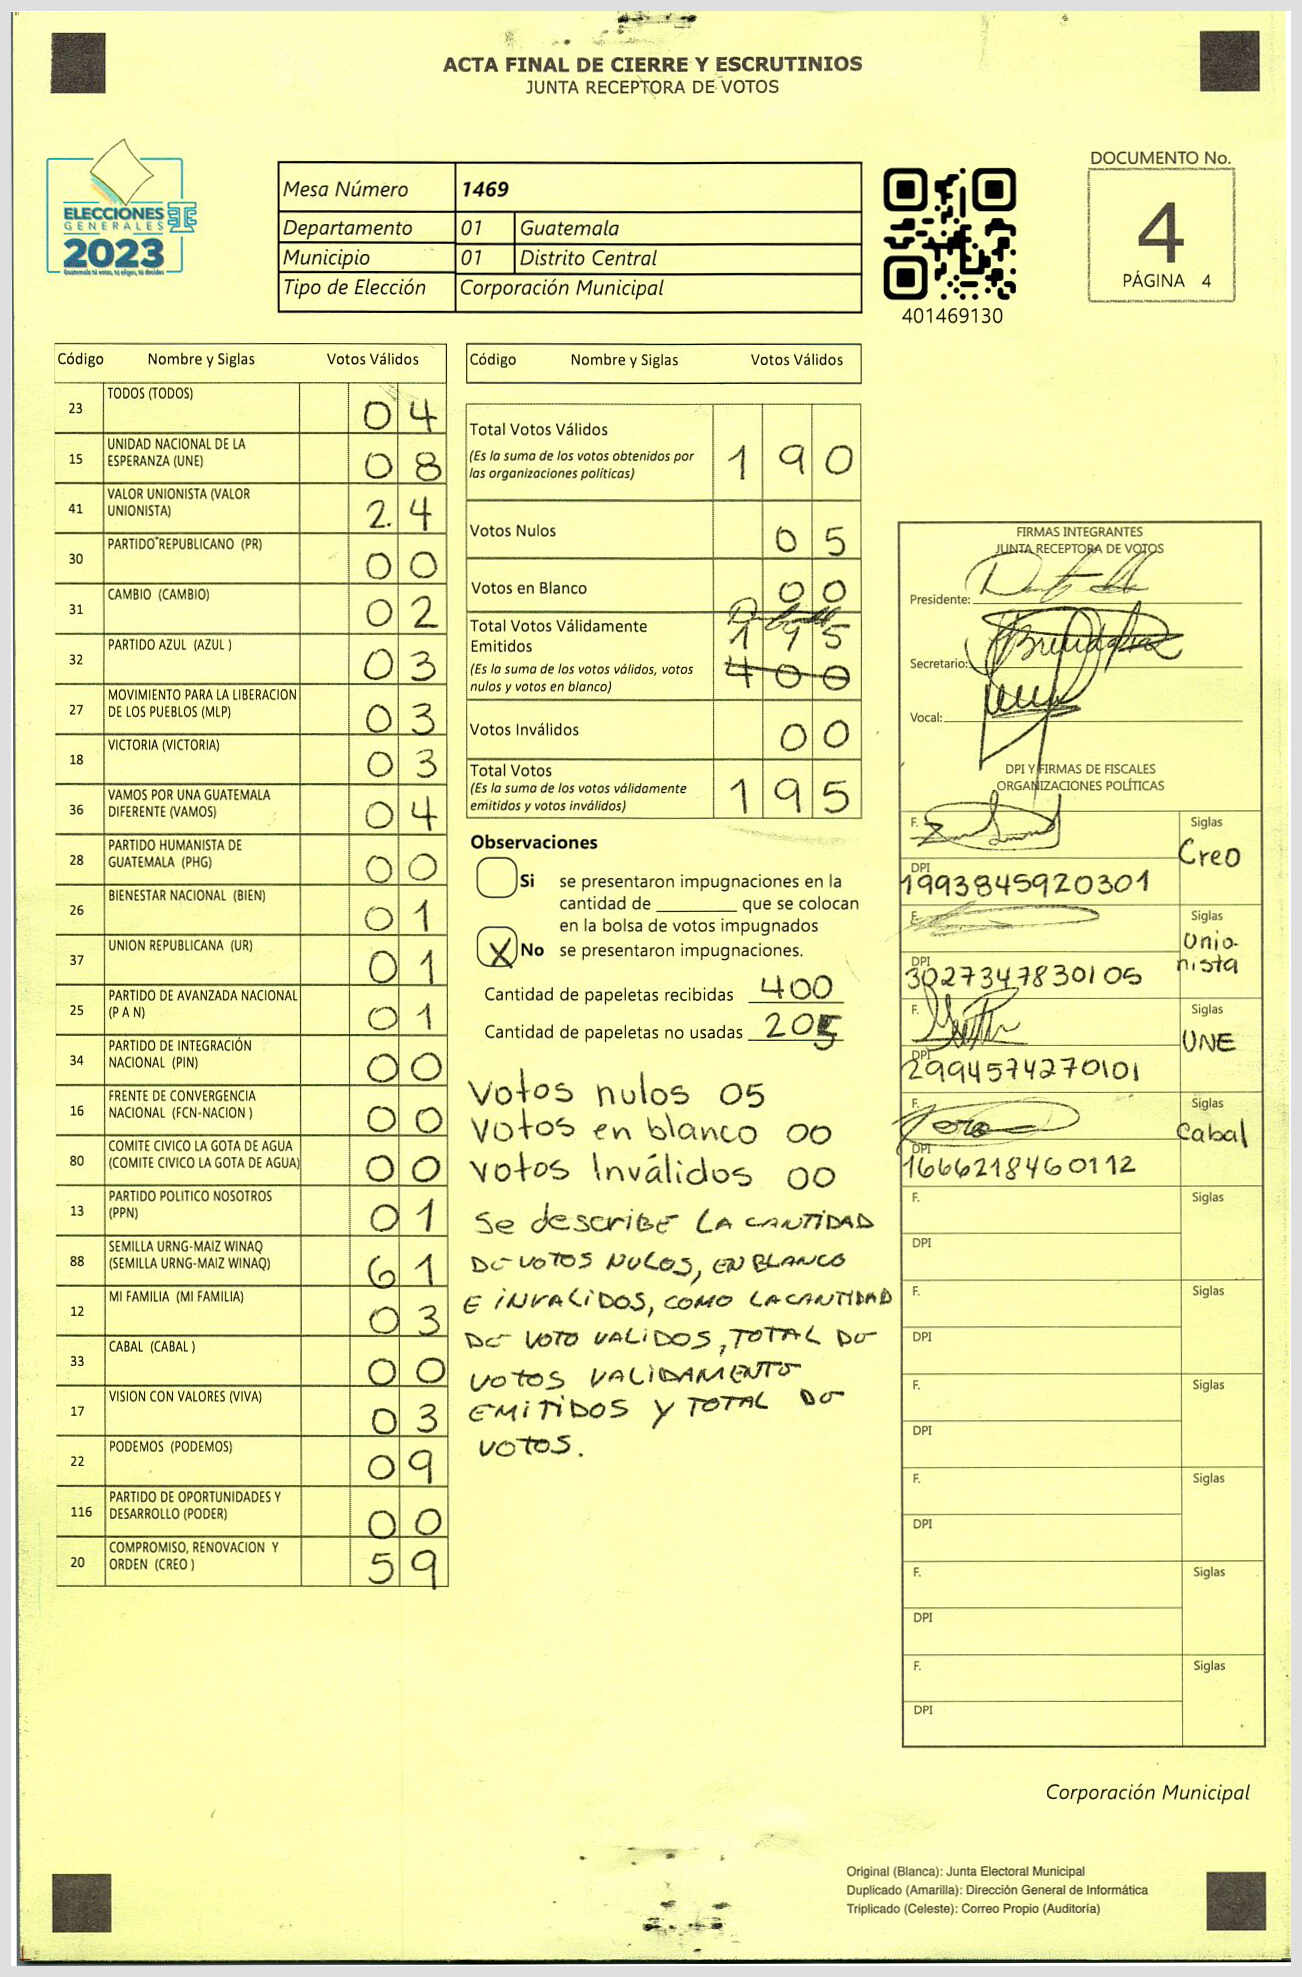 ACTA FINAL DE CIERRE Y ESCRUTINIOS
JUNTA RECEPTORA DE VOTOS
ELECCIONES
GENERALES
2023
Guatemala tú votas, tú eliges, tú decides
Mesa Número 1469
Departamento 01 Guatemala
Municipio 01 Distrito Central
Tipo de Elección Corporación Municipal
401469130
DOCUMENTO No.
4
PÁGINA 4
Código Nombre y Siglas Votos Válidos
23 TODOS (TODOS) 04
15 UNIDAD NACIONAL DE LA
ESPERANZA (UNE) 08
41 VALOR UNIONISTA (VALOR
UNIONISTA) 24
30 PARTIDO REPUBLICANO (PR) 00
31 CAMBIO (CAMBIO) 02
32 PARTIDO AZUL (AZUL ) 03
27 MOVIMIENTO PARA LA LIBERACION
DE LOS PUEBLOS (MLP) 03
18 VICTORIA (VICTORIA) 03
36 VAMOS POR UNA GUATEMALA
DIFERENTE (VAMOS) 04
28 PARTIDO HUMANISTA DE
GUATEMALA (PHG) 00
26 BIENESTAR NACIONAL (BIEN) 01
37 UNION REPUBLICANA (UR) 01
25 PARTIDO DE AVANZADA NACIONAL
(P A N) 01
34 PARTIDO DE INTEGRACIÓN
NACIONAL (PIN) 00
16 FRENTE DE CONVERGENCIA
NACIONAL (FCN-NACION ) 00
80 COMITE CIVICO LA GOTA DE AGUA
(COMITE CIVICO LA GOTA DE AGUA) 00
13 PARTIDO POLITICO NOSOTROS
(PPN) 01
88 SEMILLA URNG-MAIZ WINAQ
(SEMILLA URNG-MAIZ WINAQ) 61
12 MI FAMILIA (MI FAMILIA) 03
33 CABAL (CABAL ) 00
17 VISION CON VALORES (VIVA) 03
22 PODEMOS (PODEMOS) 09
116 PARTIDO DE OPORTUNIDADES Y
DESARROLLO (PODER) 00
20 COMPROMISO, RENOVACION Y
ORDEN (CREO ) 59
Código Nombre y Siglas Votos Válidos
Total Votos Válidos
(Es la suma de los votos obtenidos por
las organizaciones políticas) 190
Votos Nulos 05
Votos en Blanco 00
Total Votos Válidamente
Emitidos 195
(Es la suma de los votos válidos, votos
nulos y votos en blanco) 400
Votos Inválidos 00
Total Votos
(Es la suma de los votos válidamente
emitidos y votos inválidos) 195
Observaciones
Si se presentaron impugnaciones en la
cantidad de ________ que se colocan
en la bolsa de votos impugnados
X No se presentaron impugnaciones.
Cantidad de papeletas recibidas 400
Cantidad de papeletas no usadas 205
Votos nulos 05
Votos en blanco 00
Votos Inválidos 00
Se describe LA CANTIDAD
DE VOTOS NULOS, EN BLANCO
E INVALIDOS, COMO LA CANTIDAD
DE VOTO VALIDOS, TOTAL DE
VOTOS VALIDAMENTE
EMITIDOS Y TOTAL DE
VOTOS.
FIRMAS INTEGRANTES
JUNTA RECEPTORA DE VOTOS
Presidente:
Secretario:
Vocal:
DPI Y FIRMAS DE FISCALES
ORGANIZACIONES POLÍTICAS
F. Siglas
Creo
DPI
1993845920301
F. Siglas
Unio-
nista
DPI
3027347830105
F. Siglas
UNE
DPI
2994574270101
F. Siglas
Cabal
DPI
1666218460112
F. Siglas
DPI
F. Siglas
DPI
F. Siglas
DPI
F. Siglas
DPI
F. Siglas
DPI
F. Siglas
DPI
Corporación Municipal
Original (Blanca): Junta Electoral Municipal
Duplicado (Amarilla): Dirección General de Informática
Triplicado (Celeste): Correo Propio (Auditoría)